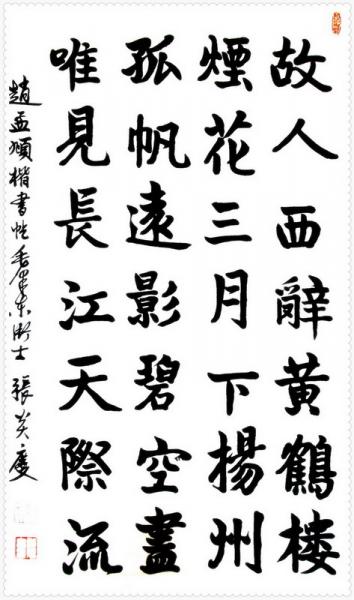 故人西辭黃鶴楼
煙花三月下揚州
孤帆遠影碧空盡
唯見長江天際流
趙孟頫楷書帖 士 張炎慶